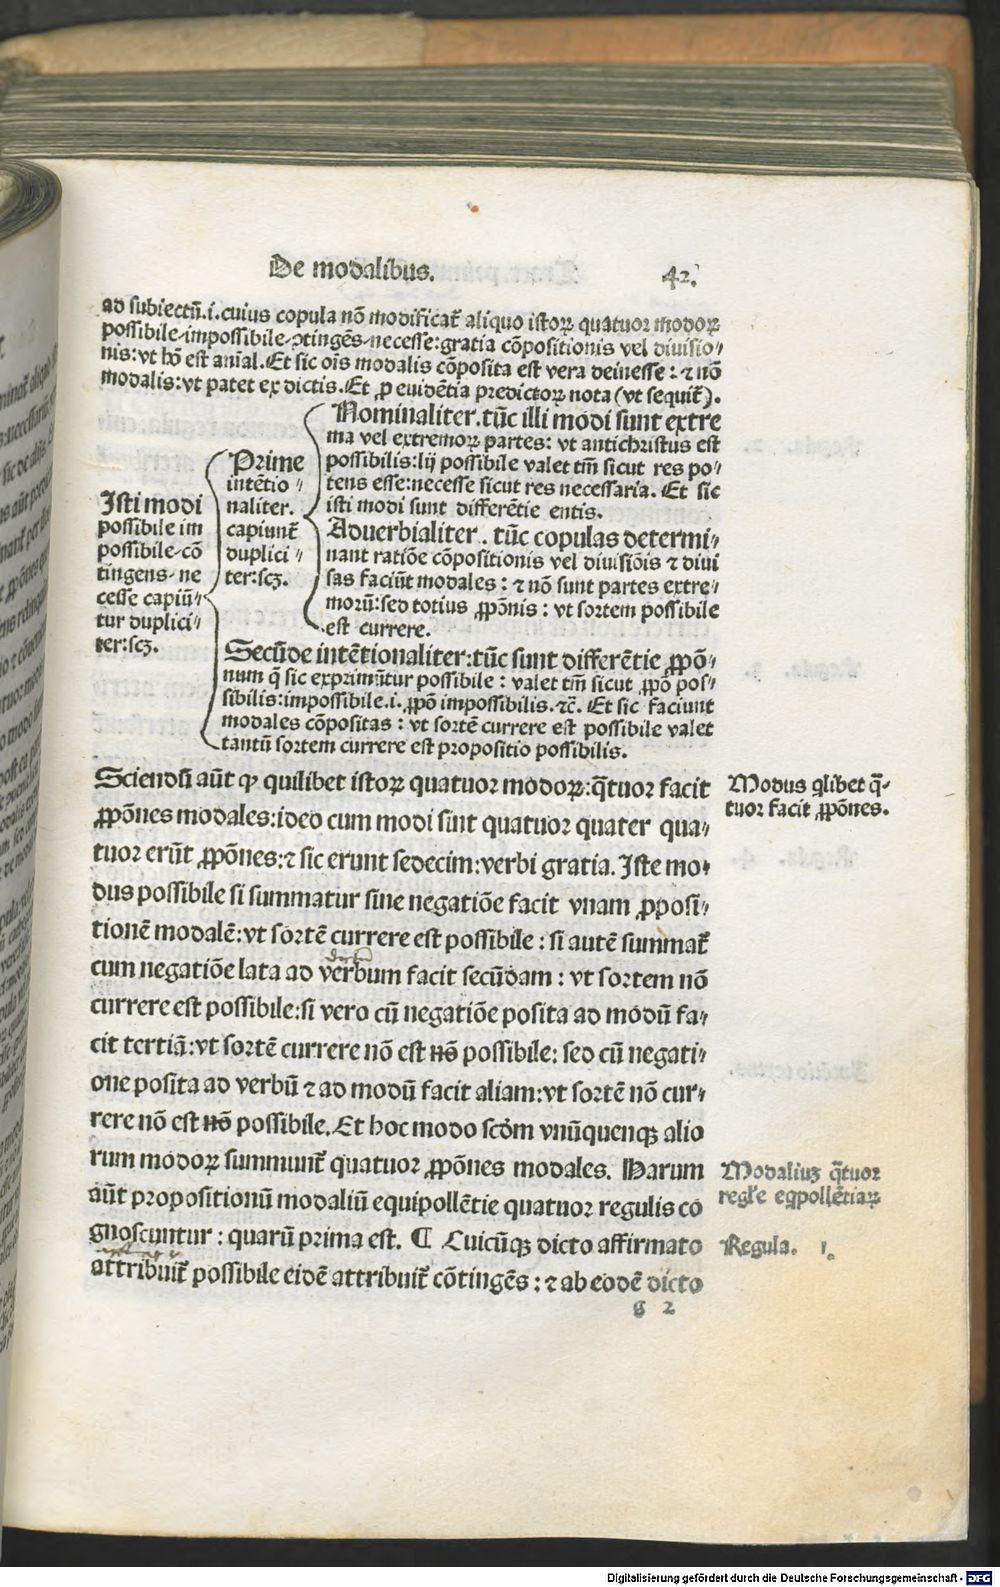 De modalibus.
42.
ad subiectū.i.cuius copula nō modificat᷒ aliquo istoꝝ quatuor modoꝝ
possibile-impossibile-ↄtingēs-necesse:gratia cōpositionis vel diuisio⸗
nis:vt hō est aīal.Et sic oīs modalis cōposita est vera deinesse: ⁊ nō
modalis:vt patet ex dictis.Et ꝓ euidētia predictoꝝ nota (vt sequit᷒).
Isti modi
possibile im
possibile-cō
tingens- ne
cesse capiū⸗
tur duplici⸗
ter:scꝫ.
Prime
intētio⸗
naliter.
capiunt᷒
duplici⸗
ter:scꝫ.
Nominaliter.tūc illi modi sunt extre
ma vel extremoꝝ partes: vt antichristus est
possibilis:lij possibile valet tm̄ sicut res po⸗
tens esse:necesse sicut res necessaria. Et sic
isti modi sunt differētie entis.
Aduerbialiter. tūc copulas determi⸗
nant ratiōe cōpositionis vel diuisiōis ⁊ diui
sas faciūt modales: ⁊ nō sunt partes extre⸗
morū:sed totius ꝓpōnis: vt sortem possibile
est currere.
Secūde intētionaliter:tūc sunt differētie ꝓpō⸗
num q̄ sic exprimūtur possibile: valet tm̄ sicut ꝓpō pos⸗
sibilis:impossibile.i.ꝓpō impossibilis.⁊c̄. Et sic faciunt
modales cōpositas: vt sortē currere est possibile valet
tantū sortem currere est propositio possibilis.
Sciendū aūt ꝙ quilibet istoꝝ quatuor modoꝝ:q̄tuor facit
ꝓpōnes modales:ideo cum modi sint quatuor quater qua⸗
tuor erūt ꝓpōnes:⁊ sic erunt sedecim:verbi gratia. Iste mo⸗
dus possibile si summatur sine negatiōe facit vnam ꝓposi⸗
tionē modalē:vt sortē currere est possibile: si autē summat᷒
cum negatiōe lata ad verbum facit secūdam: vt sortem nō
currere est possibile:si vero cū negatiōe posita ad modū fa⸗
cit tertiā:vt sortē currere nō est nō possibile: sed cū negati⸗
one posita ad verbū ⁊ ad modū facit aliam:vt sortē nō cur⸗
rere nō est nō possibile.Et hoc modo scd̄m vnūquenqꝫ alio
rum modoꝝ summunt᷒ quatuor ꝓpōnes modales. Harum
aūt propositionū modaliū equipollētie quatuor regulis co
gnoscuntur: quarū prima est. ¶ Cuicūqꝫ dicto affirmato
attribuit᷒ possibile eidē attribuit᷒ cōtingēs: ⁊ ab eodē dicto
g 2
Modus qlibet q̄⸗
tuor facit ꝓpōnes.
Modaliuꝫ q̄tuor
regl̄e eqpollētiaꝝ
Regula. 1.
Digitalisierung gefördert durch die Deutsche Forschungsgemeinschaft - DFG